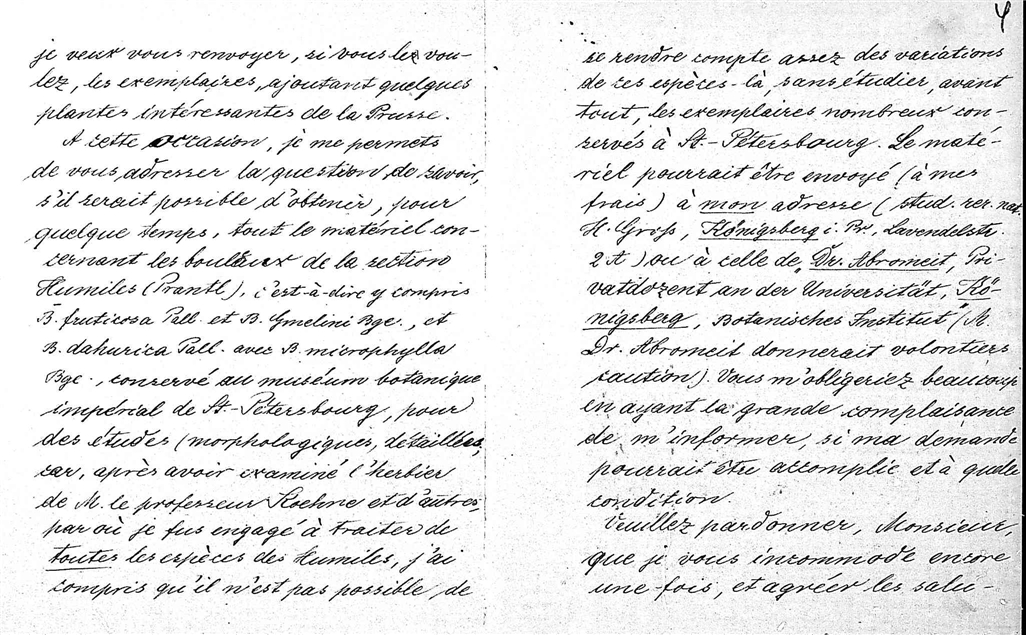 je veux vous renvoyer, si vous les vou-
lez, les exemplaires, ajoutant quelques
plantes intéressantes de la Prusse.
A cette occasion, je me permets
de vous adresser la question de savoir,
s'il serait possible d'obtenir, pour
quelque temps, tout le matériel con-
cernant les bouleaux de la section
Humiles (Prantl), c'est-à-dire y compris
B. fruticosa Pall. et B. Gmelini Bge., et
B. dahurica Pall. avec B. microphylla
Bge., conservé au muséum botanique
impérial de St.-Pétersbourg, pour
des études (morphologiques, détaillées,
car, après avoir examiné l'herbier
de M. le professeur Koehne et d'autres,
par où je fus engagé à traiter de
toutes les espèces des Humiles, j'ai
compris qu'il n'est pas possible, de
4
se rendre compte assez des variations
de ces espèces-là, sans étudier, avant
tout, les exemplaires nombreux con-
servés à St.-Pétersbourg. Le maté-
riel pourrait être envoyé (à mes
frais) à mon adresse (stud. rer. nat.
H. Groß, Königsberg i. Pr., Lavendelstr.
2 A) ou à celle de „Dr. Abromeit, Pri-
vatdozent an der Universität, Kö-
nigsberg, Botanisches Institut" (M.
Dr. Abromeit donnerait volontiers
caution). Vous m'obligeriez beaucoup
en ayant la grande complaisance
de m'informer, si ma demande
pourrait être accomplie et à quelle
condition.
Veuillez pardonner, Monsieur,
que je vous incommode encore
une fois, et agréer les salu-